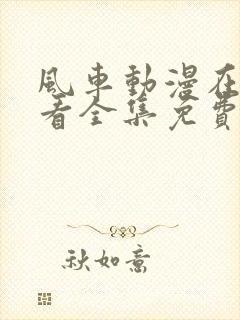 風車動漫在
看全集免費
秋如意